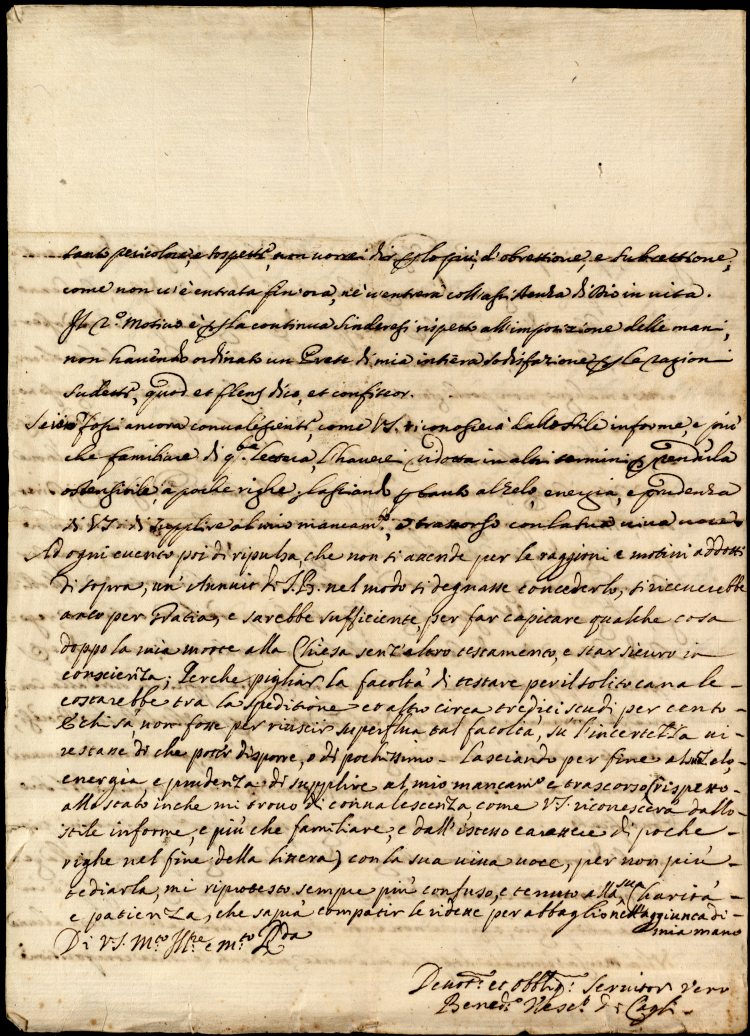 tanto pericolose, e sospette, non vorrei dir per lo più, d'obrettione, e subrettione,
come non v'è entrata fin'ora, nè v'entrerà coll'assistenza di Dio in vita.
Il 2.º motivo è per la continua sinderesi rispetto all'imposizione delle mani,
non havendo ordinato un Prete di mia intiera sodisfazione per le ragioni
sudette, quod et flens dico, et confiteor.
Se io non fossi ancora convalescente, come VS. riconoscerà dallo stile informe, e più
che familiare di q.ta lettera, l'haverei ridotta in altri termini per renderla
ostensibile à poche righe, lasciando per tanto al zelo, energia, e prudenza
di VS. di supplire al mio mancam.to, e trascorso con la sua viva voce
Ad ogni evento poi di ripulsa, che non si azende per le raggioni e motivi addotti
di sopra, un' Annuit di S.B. nel modo si degnasse concederlo, si riceverebbe
anco per Gratia, e sarebbe sufficiente, per far capitare qualche cosa
doppo la mia morte alla Chiesa senz'altro testamento, e star sicuro in
conscienza; Perche pigliar la facoltà di testare per il solito canale
costarebbe tra la speditione et altro circa tredici scudi per cento
E chi sà, non fosse per riuscir superflua tal facoltà, su l'incertezza vi
restasse di che poter disporre, o di pochissimo. Lasciando per fine al suo zelo,
energia, e prudenza di supplire al mio mancam.to e trascorso (rispetto
allo stato in che mi trovo di convalescenza, come VS. riconescerà dallo
stile informe, e più che familiare, e dall'istesso carattere di poche
righe nel fine della littera) con la sua viva voce, per non più
tediarla, mi riprotesto sempre più confuso, e tenuto alla sua Charità
e patienza, che saprà compatir le ridette per abbaglio nell'aggiunta di
mia mano
Di VS. M.to Ill.re e m.to R.da
Devot.mo et obblig.mo Servitor vero
Bened.o Vesc.o di Cagli